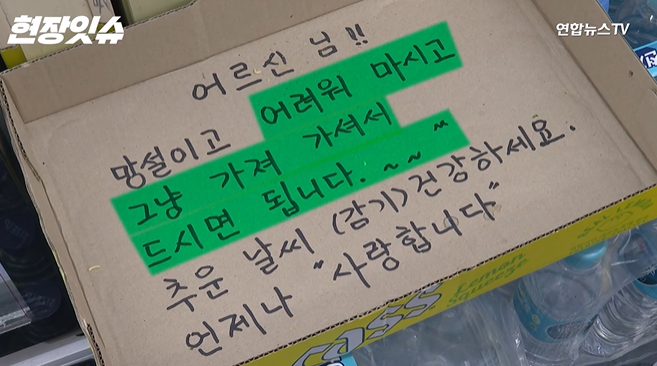 현장잇슈
연합뉴스TV
어르신 님!!
망설이고 어려워 마시고
그냥 가져 가셔서
드시면 됩니다.~~~
추운 날씨 (감기)건강하세요.
언제나 "사랑합니다"
cass
Lemon
Squeeze